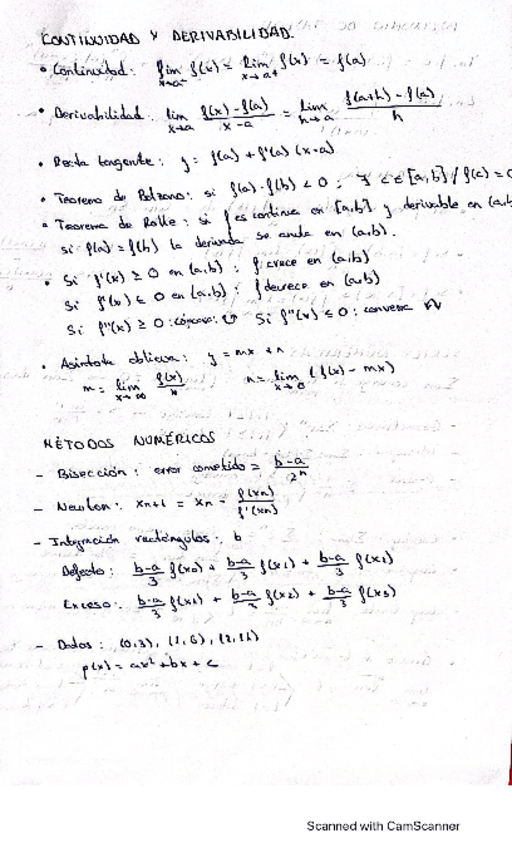 CONTINUIDAD Y DERIVABILIDAD.
• Continuidad: lim x→a⁻ f(x) = lim x→a⁺ f(x) = f(a)
• Derivabilidad: lim x→a (f(x) - f(a))/(x - a) = lim h→a (f(a+h) - f(a))/h
• Recta tangente: y = f(a) + f'(a) (x-a)
• Teorema de Bolzano: si f(a) · f(b) < 0 ; ∃ c ∈ [a,b] / f(c) = 0
• Teorema de Rolle: si f es continua en [a,b] y derivable en (a,b)
si f(a) = f(b) la derivada se anula en (a,b).
• Si f'(x) ≥ 0 en (a,b) : f crece en (a,b)
Si f'(x) ≤ 0 en (a,b) : f decrece en (a,b)
Si f''(x) ≥ 0 : cóncava: ∪ Si f''(x) ≤ 0 : convexa ∩
• Asíntota oblicua: y = mx + n
m = lim x→∞ f(x)/x n = lim (f(x) - mx)
MÉTODOS NUMÉRICOS
- Bisección: error cometido = (b-a)/2ⁿ
- Newton: xn+1 = xn - f(xn)/f'(xn)
- Integración rectángulos: b
Defecto: (b-a)/3 f(x0) + (b-a)/3 f(x1) + (b-a)/3 f(x2)
Exceso: (b-a)/3 f(x1) + (b-a)/3 f(x2) + (b-a)/3 f(x3)
- Dados: (0,3), (1,6), (2,11)
p(x) = ax² + bx + c
Scanned with CamScanner